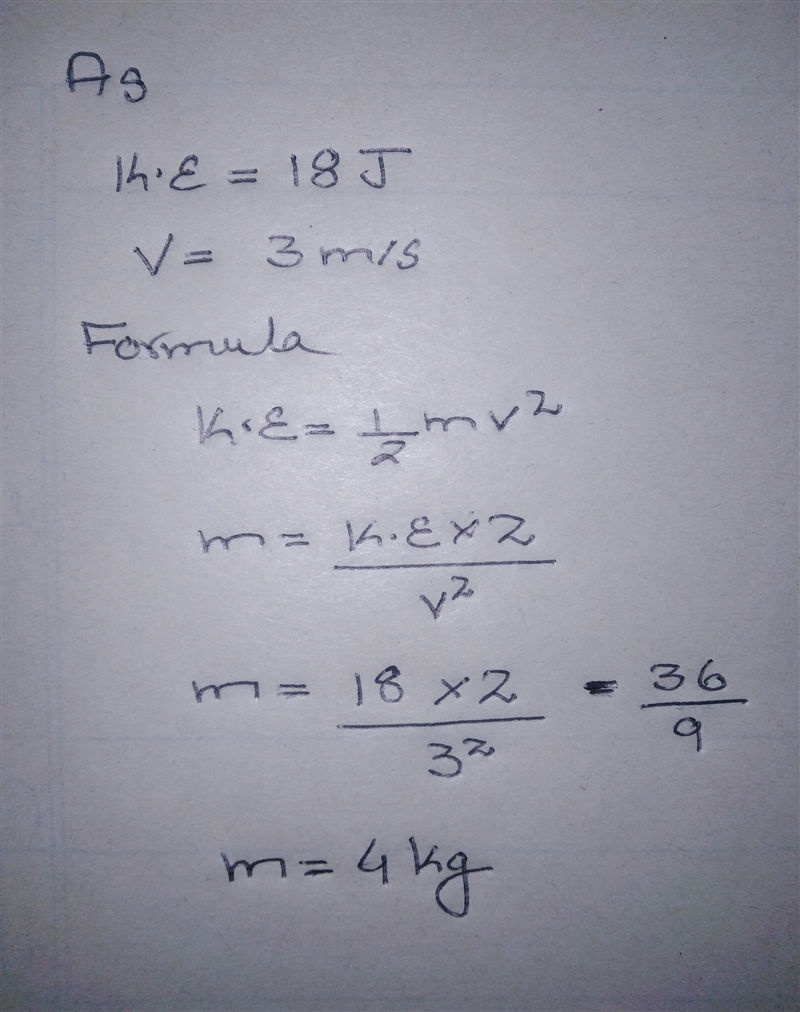 As
K.E = 18 J
V = 3 m/s
Formula
K.E = 1/2 mv²
m = K.E × 2 / v²
m = 18 × 2 / 3² - 36 / 9
m = 4 kg